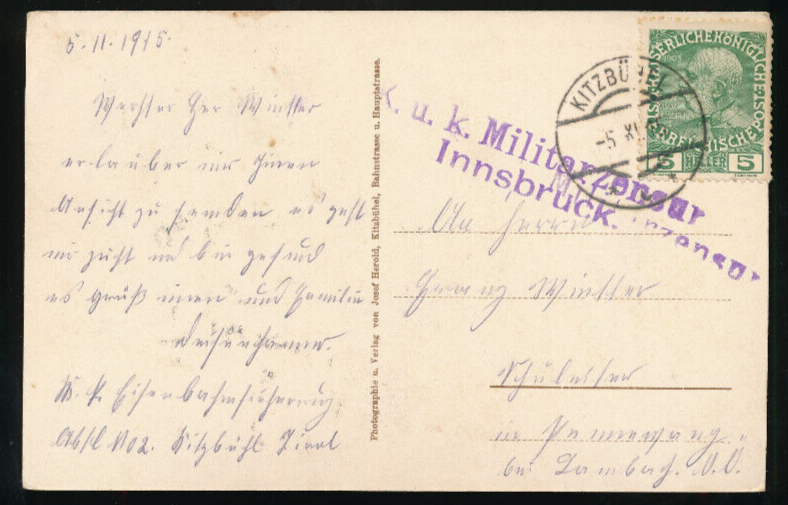 5.11.1915.
Werther Her Winkler
erlauber mir Ihnen
Ansicht zu senden es geht
mir gut und bin gesund
es grüß ihnen und Familie
K. k. Eisenbahnsicherung
Abtl No 2. Kitzbühl Tirol
Photographie u. Verlag von Josef Herold, Kitzbühel, Bahnstrasse u. Hauptstrasse.
K. u. k. Militärzensur
Innsbruck.
KITZBÜHEL
-5 XI
KAISERLICHE KÖNIGLICHE ÖSTERREICHISCHE
5 HELLER 5
An Herrn
Franz
Schulleiter
in
bei Lambach. O.Ö.